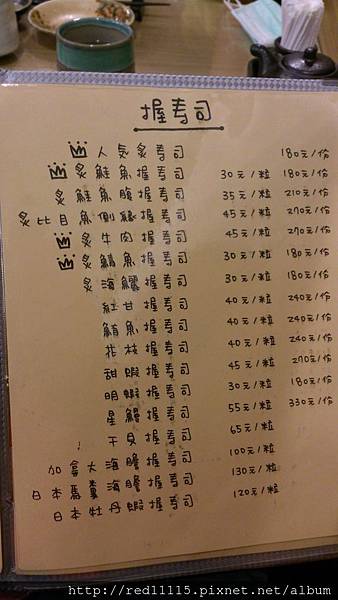 握寿司
人気炙寿司 180元/份
炙鮭魚握寿司 30元/粒 180元/份
炙鮭魚腹握寿司 35元/粒 210元/份
炙比目魚側緣握寿司 45元/粒 270元/份
炙牛肉握寿司 45元/粒 270元/份
炙鯛魚握寿司 30元/粒 180元/份
炙海鱺握寿司 30元/粒 180元/份
紅甘握寿司 40元/粒 240元/份
鮪魚握寿司 40元/粒 240元/份
花枝握寿司 40元/粒 240元/份
甜蝦握寿司 45元/粒 270元/份
明蝦握寿司 30元/粒 180元/份
星鰻握寿司 55元/粒 330元/份
干貝握寿司 65元/粒
加拿大海膽握寿司 100元/粒
日本馬糞海膽握寿司 130元/粒
日本牡丹蝦握寿司 120元/粒
http://red11115.pixnet.net/album